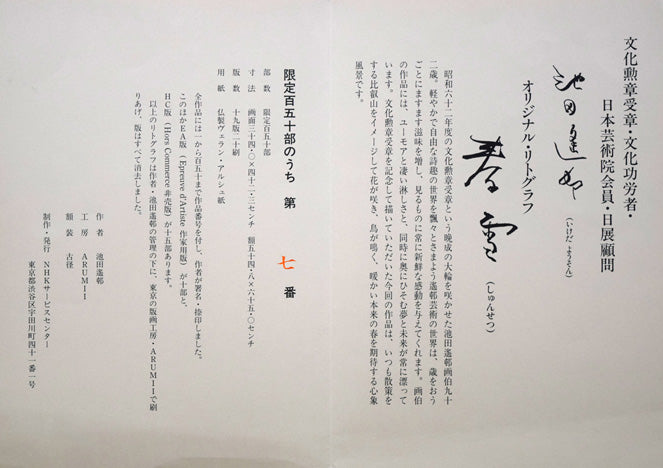 文化勲章受章・文化功労者・
日本芸術院会員・日展顧問
池田遙邨
(いけだ ようそん)
オリジナル・リトグラフ
春雪
(しゅんせつ)
昭和六十二年度の文化勲章受章という晩成の大輪を咲かせた池田遙邨画伯九十
二歳。軽やかで自由な詩趣の世界を飄々とさまよう遙邨芸術の世界は、歳をおう
ごとにますます滋味を増し、見るものに常に新鮮な感動を与えてくれます。画伯
の作品には、ユーモアと凄い淋しさと、同時に奥にひそむ夢と未来が常に漂って
います。文化勲章受章を記念して描いていただいた今回の作品は、いつも散策を
する比叡山をイメージして花が咲き、鳥が鳴く、暖かい本来の春を期待する心象
風景です。
限定百五十部のうち 第 七 番
部数 限定百五十部
寸法 画面三十四・〇×四十二・三センチ 額五十四・八×六十五・〇センチ
版数 十九版二十刷
用紙 仏製ヴェラン・アルシュ紙
全作品には一から百五十まで作品番号を付し、作者が署名・捺印しました。
このほかEA版(Epreuve d'Artiste 作家用版)が十部と、
HC版(Hors Commerce 非売版)が十五部あります。
以上のリトグラフは作者・池田遙邨の管理の下に、東京の版画工房・ARUMIIで刷
りあげ、版はすべて消去しました。
作者 池田遙邨
工房 ARUMII
額装 古径
制作・発行 NHKサービスセンター
東京都渋谷区宇田川町四十一番一号